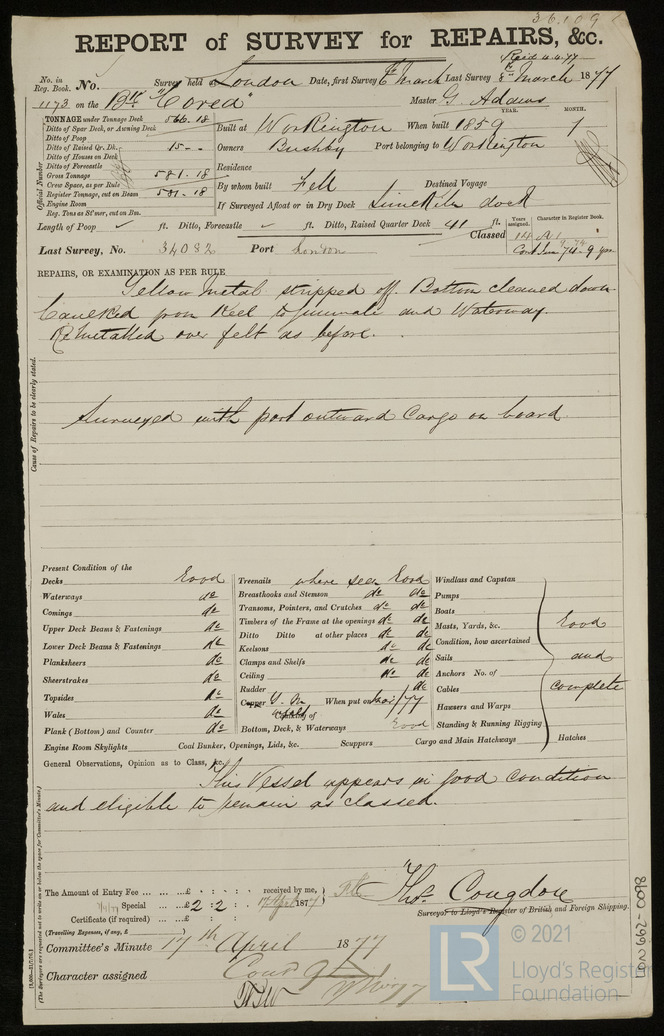 36109
REPORT of SURVEY for REPAIRS, &c.
No. in Reg. Book. No. Survey held at London Date, first Survey 6th March Last Survey 8th March 1877
1173 on the Bk "Corea" Master G. Adams
TONNAGE under Tonnage Deck 566.18
Ditto of Spar Deck, or Awning Deck
Ditto of Poop
Ditto of Raised Qr. Dk. 15 - -
Ditto of Houses on Deck
Ditto of Forecastle
Gross Tonnage 581.18
Crew Space, as per Rule
Register Tonnage, cut on Beam 581.18
Engine Room
Reg. Tons as St'mer, cut on Bm.
Official Number
YEAR. MONTH.
Built at Workington When built 1859 1
Owners Bushby Port belonging to Workington
Residence
By whom built Fell Destined Voyage
If Surveyed Afloat or in Dry Dock Limekiln dock
Length of Poop ft. Ditto, Forecastle ft. Ditto, Raised Quarter Deck 41 ft.
Years assigned. Character in Register Book.
Classed 14 A1
Last Survey, No. 34082 Port London
REPAIRS, OR EXAMINATION AS PER RULE
Yellow Metal stripped off. Bottom cleaned down.
Caulked from Keel to Gunwale and Waterway.
ReMetalled over felt as before.
Surveyed with part outward Cargo on board
Cause of Repairs to be clearly stated.
Present Condition of the
Decks Good
Waterways do
Comings do
Upper Deck Beams & Fastenings do
Lower Deck Beams & Fastenings do
Planksheers do
Sheerstrakes do
Topsides do
Wales do
Plank (Bottom) and Counter do
Treenails where seen Good
Breasthooks and Stemson do do
Transoms, Pointers, and Crutches do do
Timbers of the Frame at the openings do do
Ditto Ditto at other places do do
Keelsons do do
Clamps and Shelfs do do
Ceiling do do
Rudder do
Copper Y. M. When put on Mar/77
Caulking of
Bottom, Deck, & Waterways Good
Windlass and Capstan
Pumps
Boats
Masts, Yards, &c.
Condition, how ascertained
Sails
Anchors No. of
Cables
Hawsers and Warps
Standing & Running Rigging
Good
and
complete
Engine Room Skylights Coal Bunker, Openings, Lids, &c. Scuppers Cargo and Main Hatchways Hatches
General Observations, Opinion as to Class, &c.
This Vessel appears in good condition
and eligible to remain as classed.
The Amount of Entry Fee ... ... £ : : received by me,
Special ... £ 2 : 2 : 187
Certificate (if required) ... £ : :
(Travelling Expenses, if any, £ )
Thos. Congdon
Surveyor to Lloyd's Register of British and Foreign Shipping.
Committee's Minute 17th April 1877
Character assigned
(The Surveyors are requested not to write on or below the space for Committee's Minute.)
LON 662-0098
LR
© 2021
Lloyd's Register
Foundation